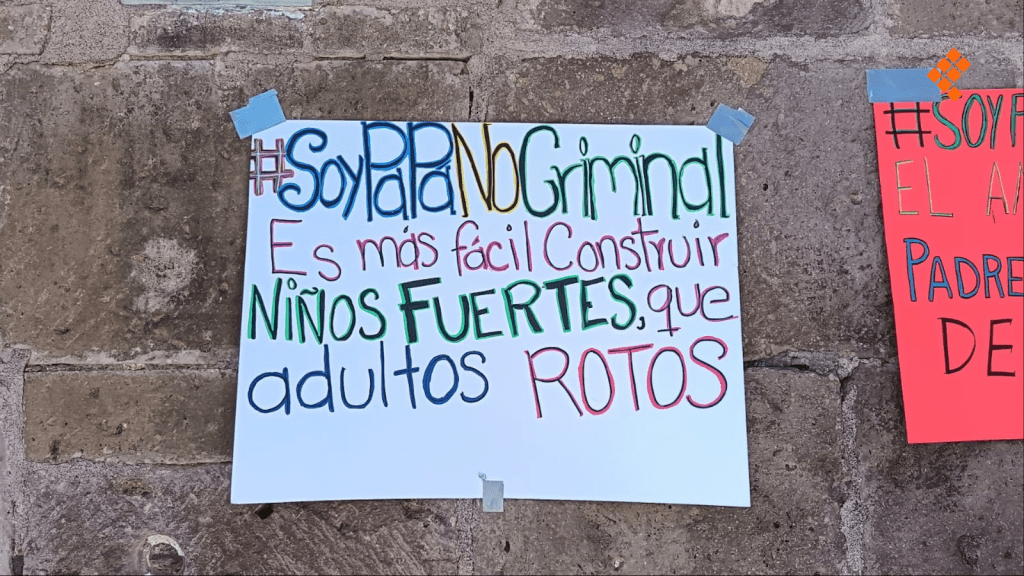 #SoyPaPáNoCriminal
Es más fácil Construir
NIÑOS FUERTES, que
adultos ROTOS
#SOY
EL
PADRE
DE